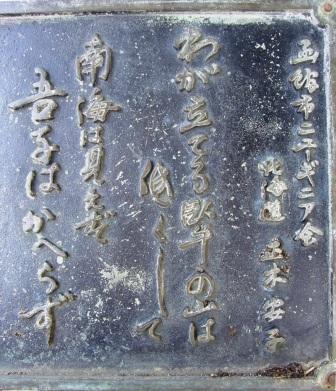 函館市ニューギニア会
北海道 安子
わが立てる臥牛の山は
低くして
南海は見えず
吾子はかへらず